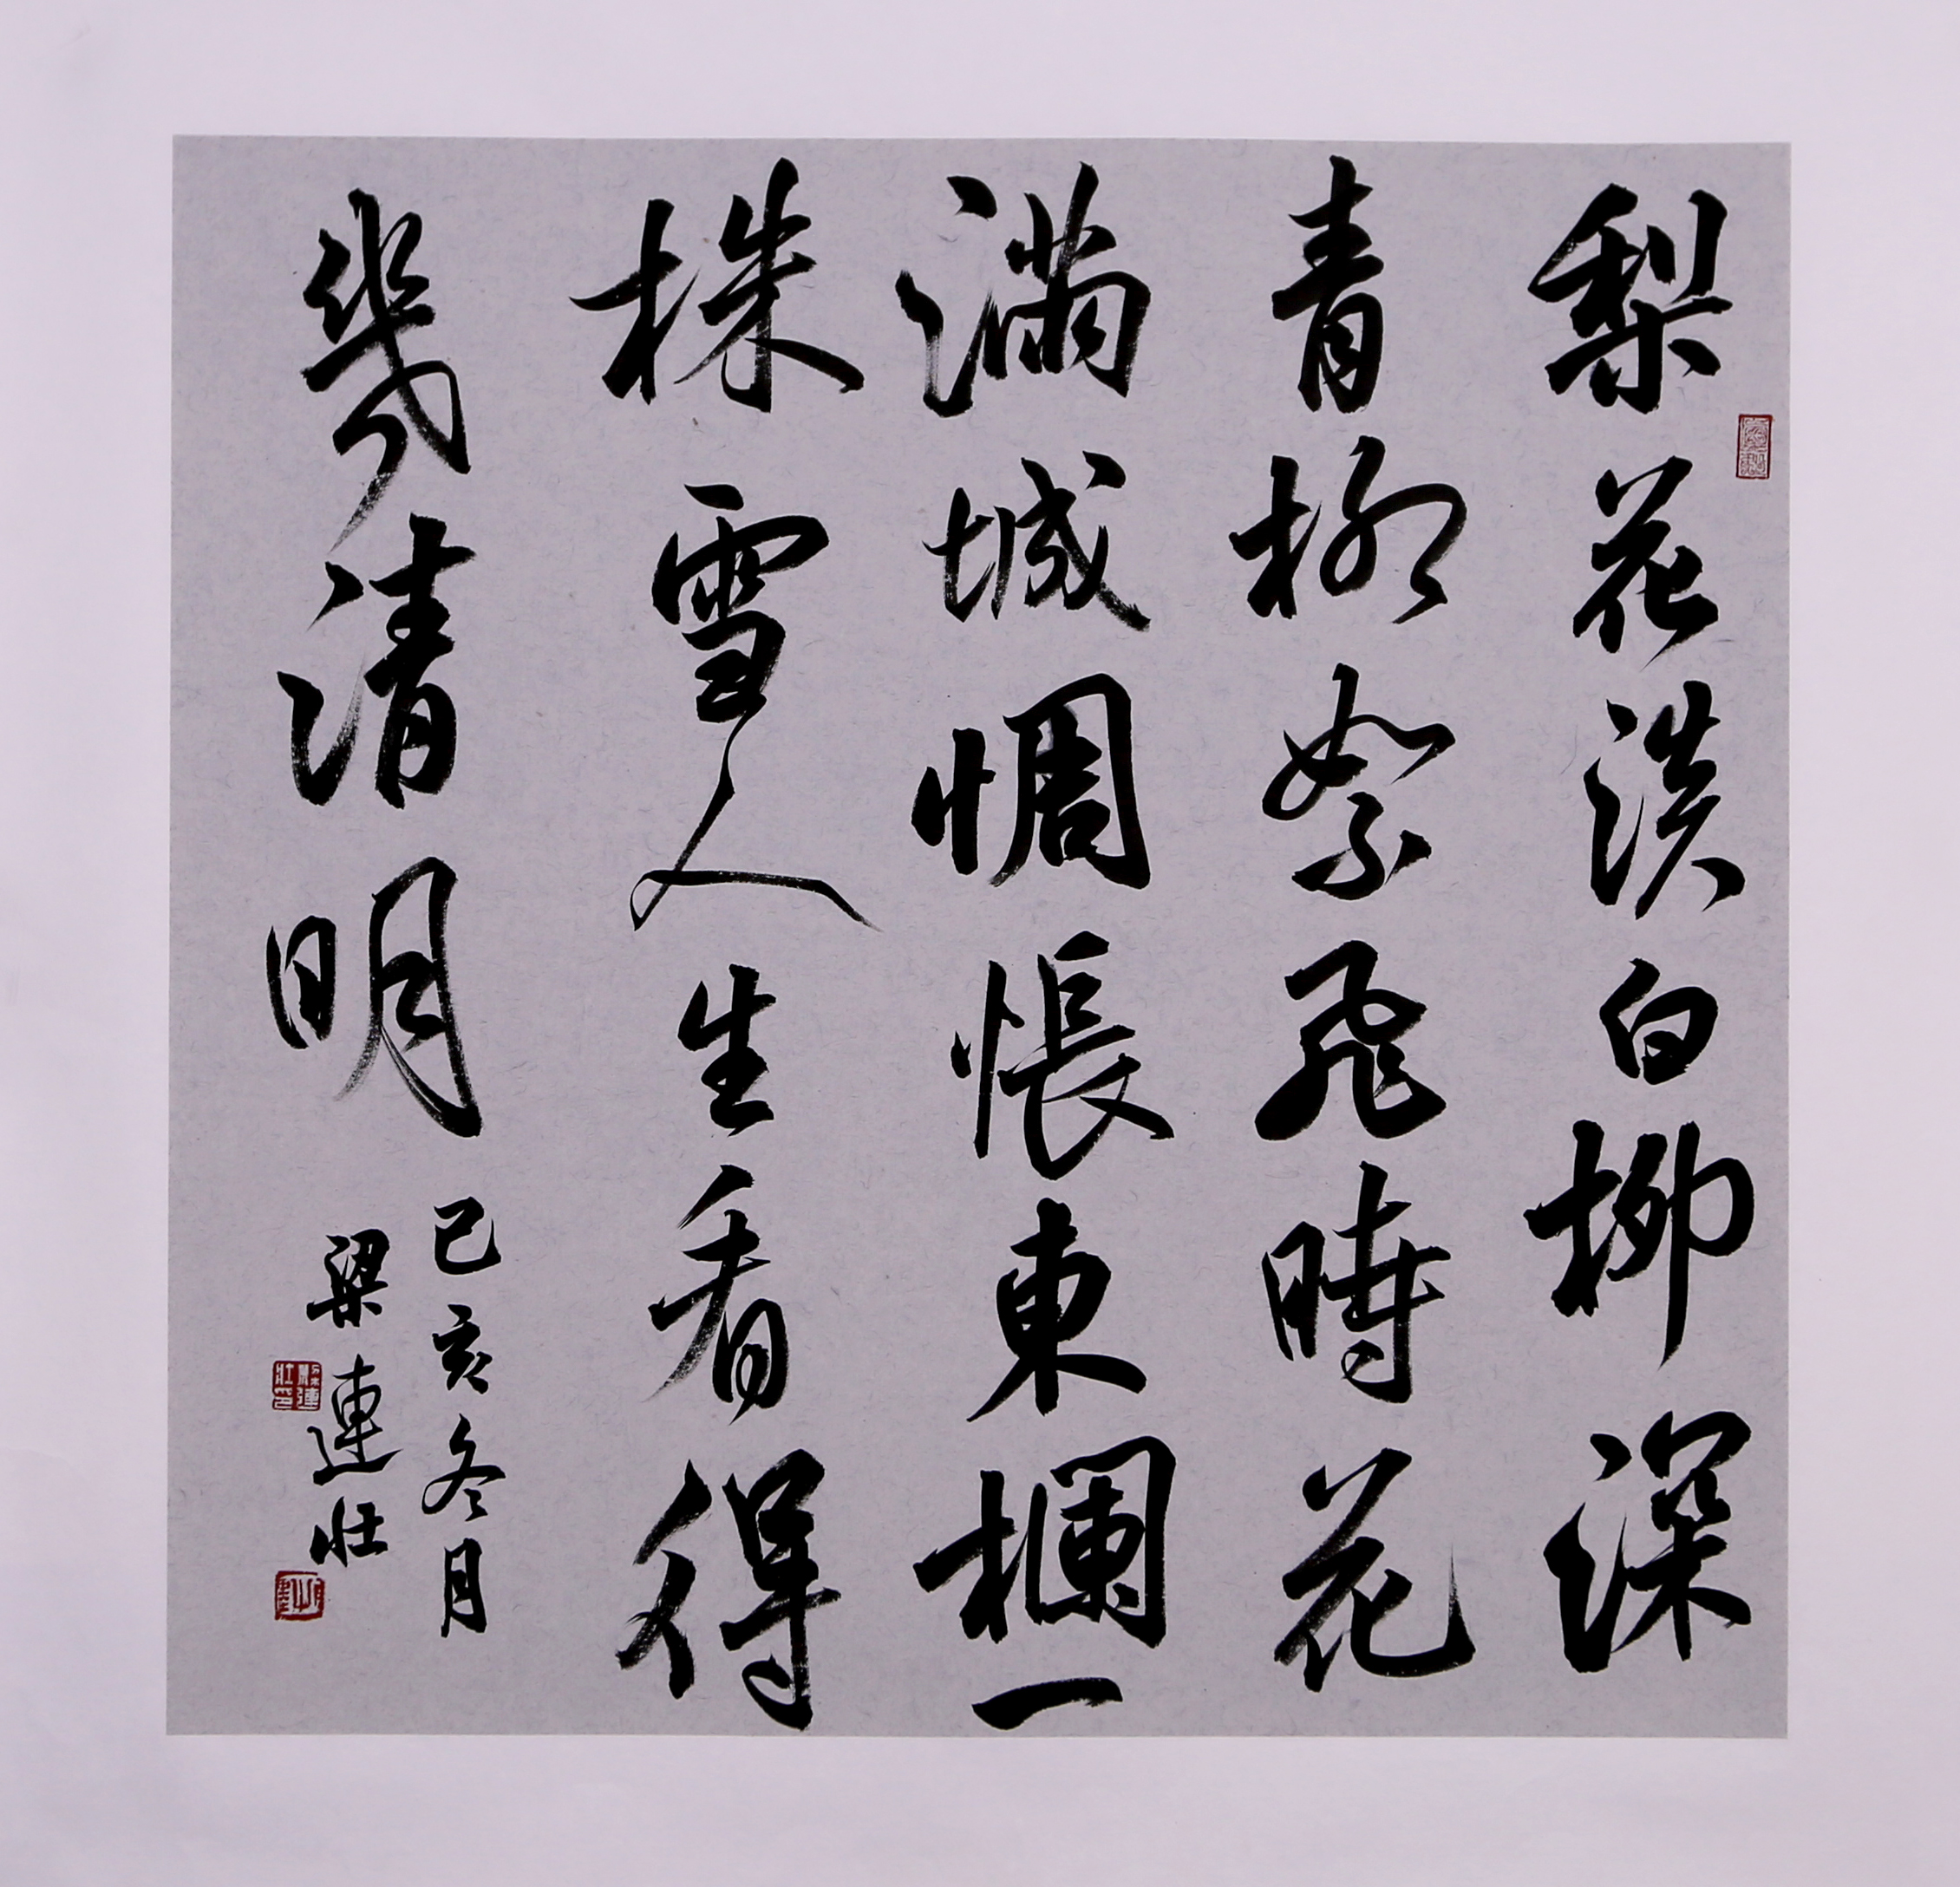 梨花淡白柳深
青柳絮飛時花
滿城惆悵東欄一
株雪人生看得
幾清明
己亥冬月
梁連壯
梁連壯印